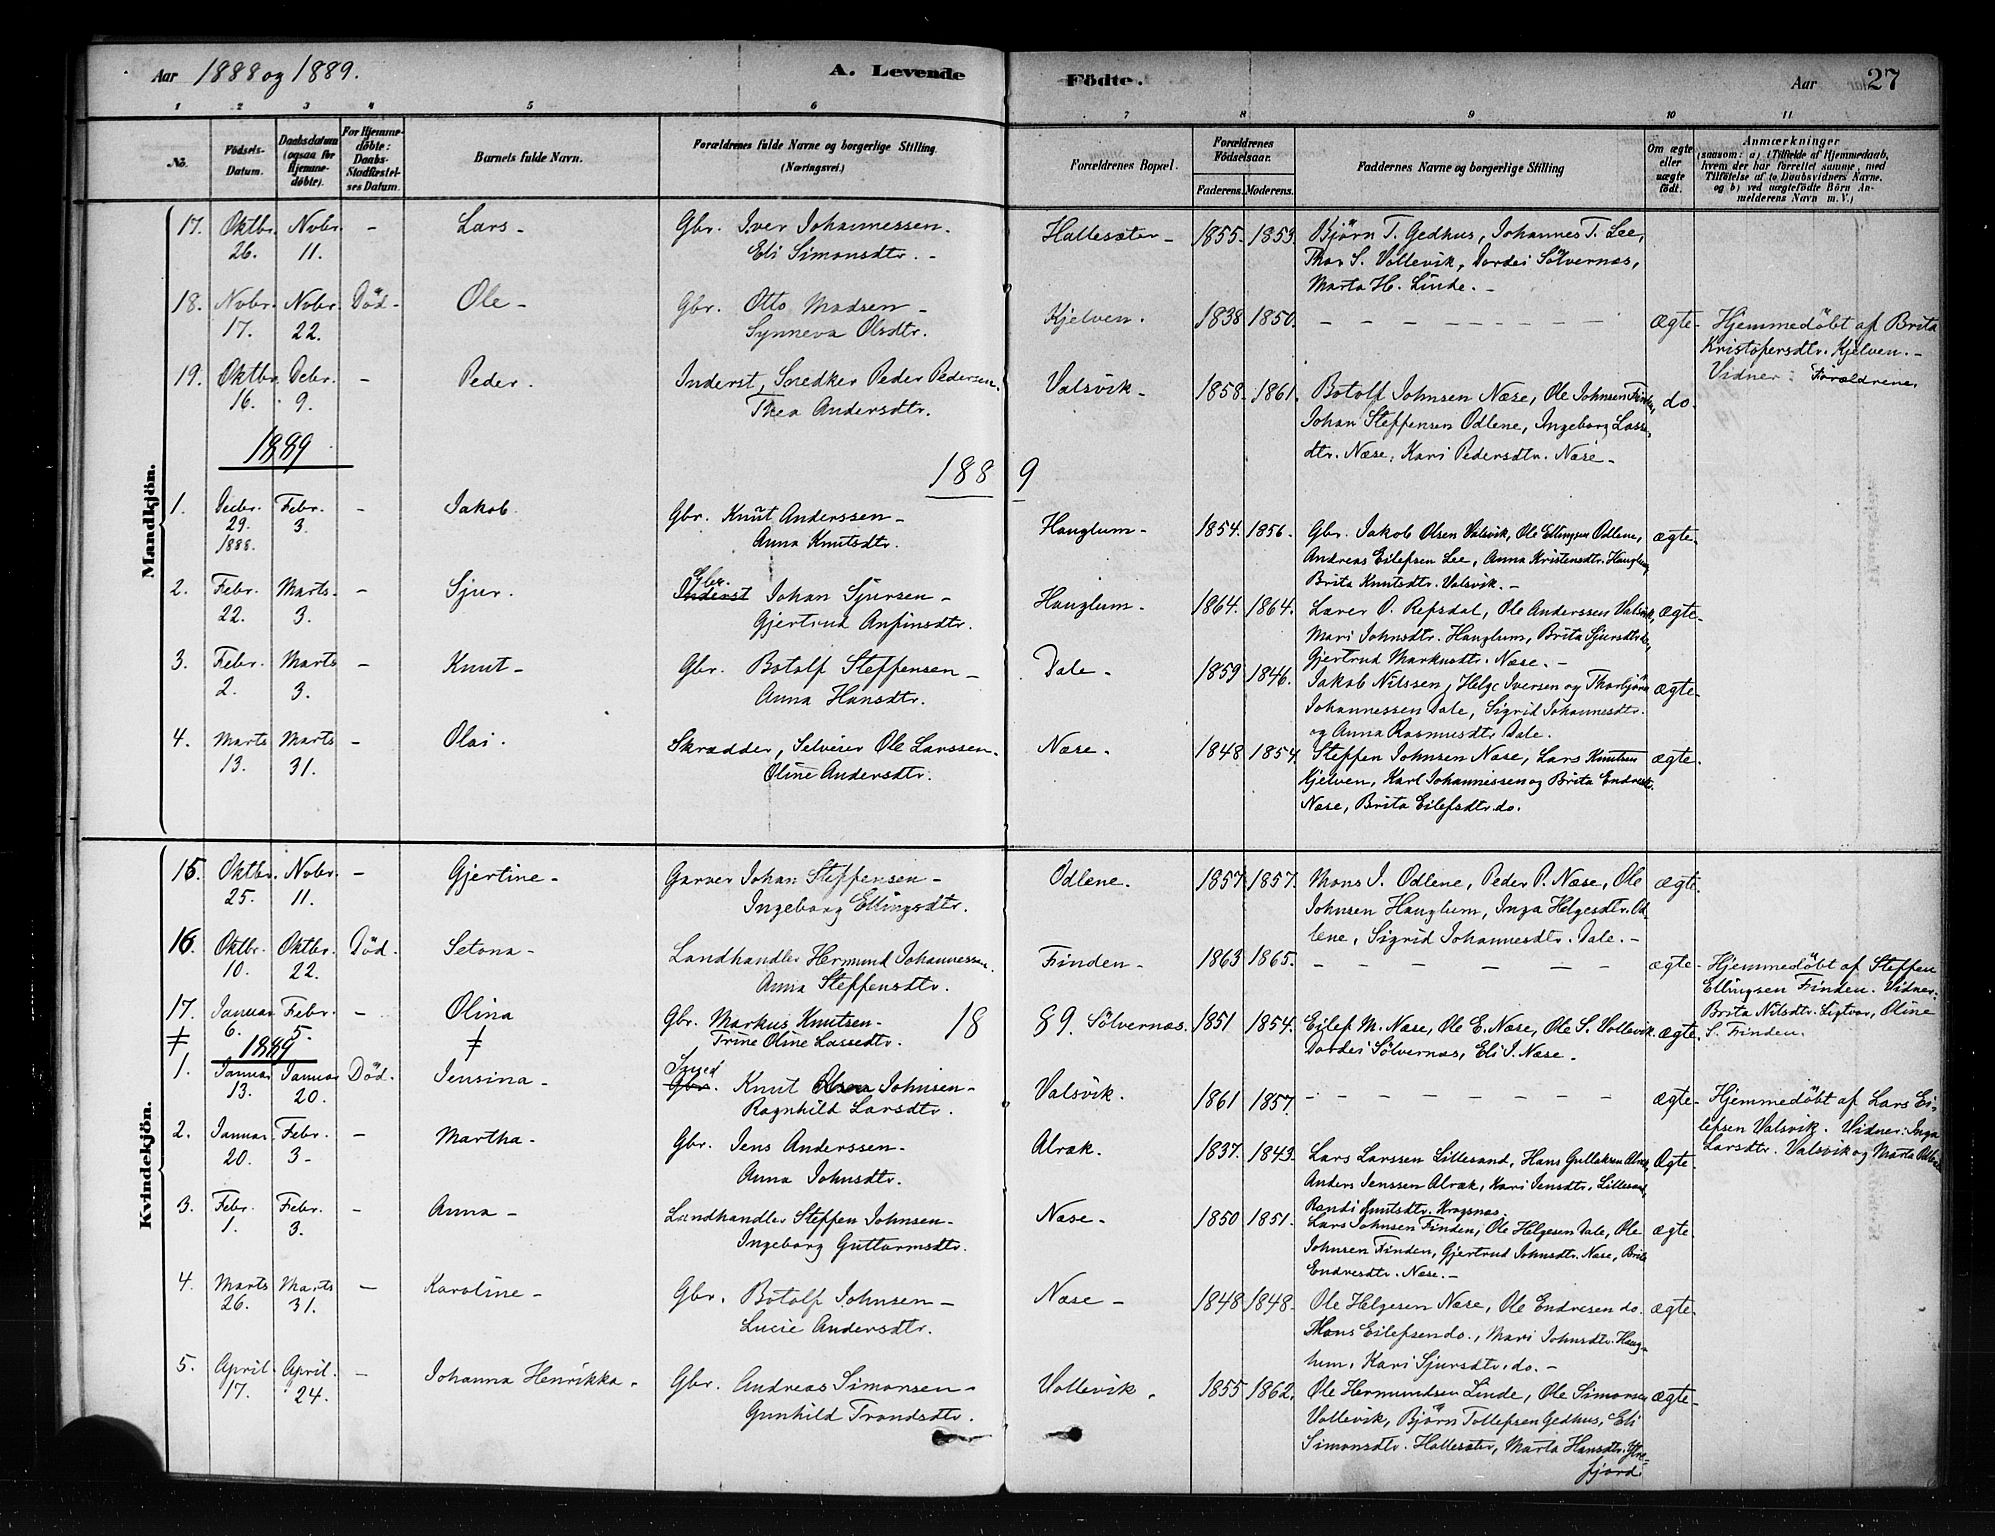 Aar 1888 og 1889. A. Levende Födte. Aar 27
1 2 3 4 5 6 7 8 9 10 11
No. Födsels-Datum. Daabsdatum (ogsaa for Hjemme-döbte). For Hjemme-döbte: Daabs-Stadfæstel-ses Datum. Barnets fulde Navn. Forældrenes fulde Navne og borgerlige Stilling. (Næringsvei.) Forældrenes Bopæl. Forældrenes Födselsaar. Faderens. Moderens. Faddernes Navne og borgerlige Stilling Om ægte eller uægte födt. Anmærkninger (saasom: a) (Tilfælde af Hjemmedaab, hvem der har forrettet samme, med Tilföielse af to Daabsvidners Navne, og b) ved uægtefödte Börn Anmelderens Navn m. V.)
Mandkjön.
17. Oktbr. 26. Nvbr. 11. - Lars - Gbr. Iver Johannessen - Hallesæter - 1855. 1853. Björn T. Gedhus, Johannes T. Lee,
Eli Simonsdtr. - Thor S. Vollevik, Dordei Sölvernæs,
Marta H. Linde. -
18. Nvbr. 17. Nvbr. 22. Död - Ole - Gbr. Otto Madsen - Kjelven. 1838 1850. - - - - - - ægte - Hjemmedöbt af Brita
Synneva Olsdtr. Kristofersdtr. Kjelven. -
Vidner: Forældrene
19. Oktbr. 16. Debr. 9. - Peder. Inderst, Snedker Peder Pedersen. Valsvik - 1858. 1861. Botolf Johnsen Næse, Ole Johnsen Finden, do.
Thea Andersdtr. Johan Steffensen Odlene, Ingeborg Lasse-
dtr. Næse, Kari Pedersdtr. Næse -
1889 1889
1. Decbr. 29. 1888. Febr. 3. - Jakob. Gbr. Knut Anderssen - Hauglum - 1854. 1856. Gbr. Jakob Olsen Valsvik, Ole Ellingsen Odlene, ægte.
Anna Knutsdtr. Andreas Eilefsen Lee, Anna Kristensdtr. Hauglum,
Brita Knutsdtr. Valsvik. -
2. Febr. 22. Marts 3. - Sjur. Gbr. Inderst Johan Sjursen - Hauglum - 1864. 1864. Lærer O. Refsdal, Ole Anderssen Valsvik, ægte.
Gjertrud Anfinsdtr. Mari Johnsdtr. Hauglum, Brita Sjursdtr. do,
Gjertrud Markusdtr. Næse. -
3. Febr. 2. Marts 3. - Knut - Gbr. Botolf Steffensen - Dale - 1859 1846. Jakob Nilssen, Helge Iversen og Thorbjörn ægte.
Anna Hansdtr. Johannessen Dale, Sigrid Johannesdtr.
og Anna Rasmusdtr Dale.
4. Marts 13. Marts 31. - Olai. Skrædder, Selveier Ole Larssen. Næse. 1848 1854. Steffen Johnsen Næse, Lars Knutsen ægte.
Oline Andersdtr. Kjelven, Karl Johannessen og Brita Endresdtr.
Næse, Brita Eilefsdtr. do.
Kvindekjön.
15. Oktbr. 25. Nvbr. 11. - Gjertine - Garver Johan Steffensen - Odlene. 1857. 1857. Mons J. Odlene, Peder P. Næse, Ole ægte.
Ingeborg Ellingsdtr. Johnsen Hauglum, Inga Helgesdtr. Od-
lene, Sigrid Johannesdtr. Dale. -
16. Oktbr. 10. Oktbr. 22. Död. Setona - Landhandler Hermund Johannessen. Finden - 1863 1865. - - - - - - ægte - Hjemmedöbt af Steffen
Anna Steffensdtr. Ellingsen Finden. Vidner:
17. Januar 6. Febr. 5. - Olina Gbr. Markus Knutsen - 1889. Sölvernæs. 1851 1854. Eilef M. Næse, Ole E. Næse, Ole S. Vollevik. ægte. Brita Nilsdtr. Ligtvor, Oline
Trine Oline Lassedtr. Dordei Sölvernæs, Eli J. Næse. - S. Finden.
1889
1. Januar 13. Januar 20. Död. Jensina - Smed Gbr. Knut Olsen Johnsen - Valsvik. 1861 1857. - - - - - - ægte - Hjemmedöbt af Lars Ei-
Ragnhild Larsdtr. lefsen Valsvik. Vidner: Inga
2. Januar 20. Febr. 3 - - Martha - Gbr. Jens Anderssen - Alræk. 1837. 1843. Lars Larssen Lillesand, Hans Gullaksen Alræk, Ægte. Larsdtr. Valsvik og Marta
Anna Johnsdtr. Anders Jenssen Alræk, Kari Jensdtr. Lillesand,
Randi Knutsdtr. Kragsnæs.
3. Febr. 1. Febr. 3. - Anna - Landhandler Steffen Johnsen - Næse - 1850 1851. Lars Johnsen Finden, Ole Helgesen Dale, Ole ægte.
Ingeborg Guttormsdtr. Johnsen Finden, Gjertrud Johnsdtr. Næse, Brita
Endresdtr. Næse. -
4. Marts 26. Marts 31. - Karoline - Gbr. Botolf Johnsen - Næse - 1848 1848. Ole Helgesen Næse, Ole Endresen do. ægte.
Lucie Andersdtr. Mons Eilefsen do., Mari Johnsdtr. Haug-
lum, Kari Sjursdtr. do. -
5. April 17. April. 24. - Johanna Henrikka - Gbr. Andreas Simonsen - Vollevik. 1855 1862. Ole Hermundsen Linde, Ole Simonsen ægte -
Gunhild Trondsdtr. Vollevik, Björn Tollefsen Gedhus, Eli
Simonsdtr. Hallesæter, Marta Hansdtr. Yre-
fjord.